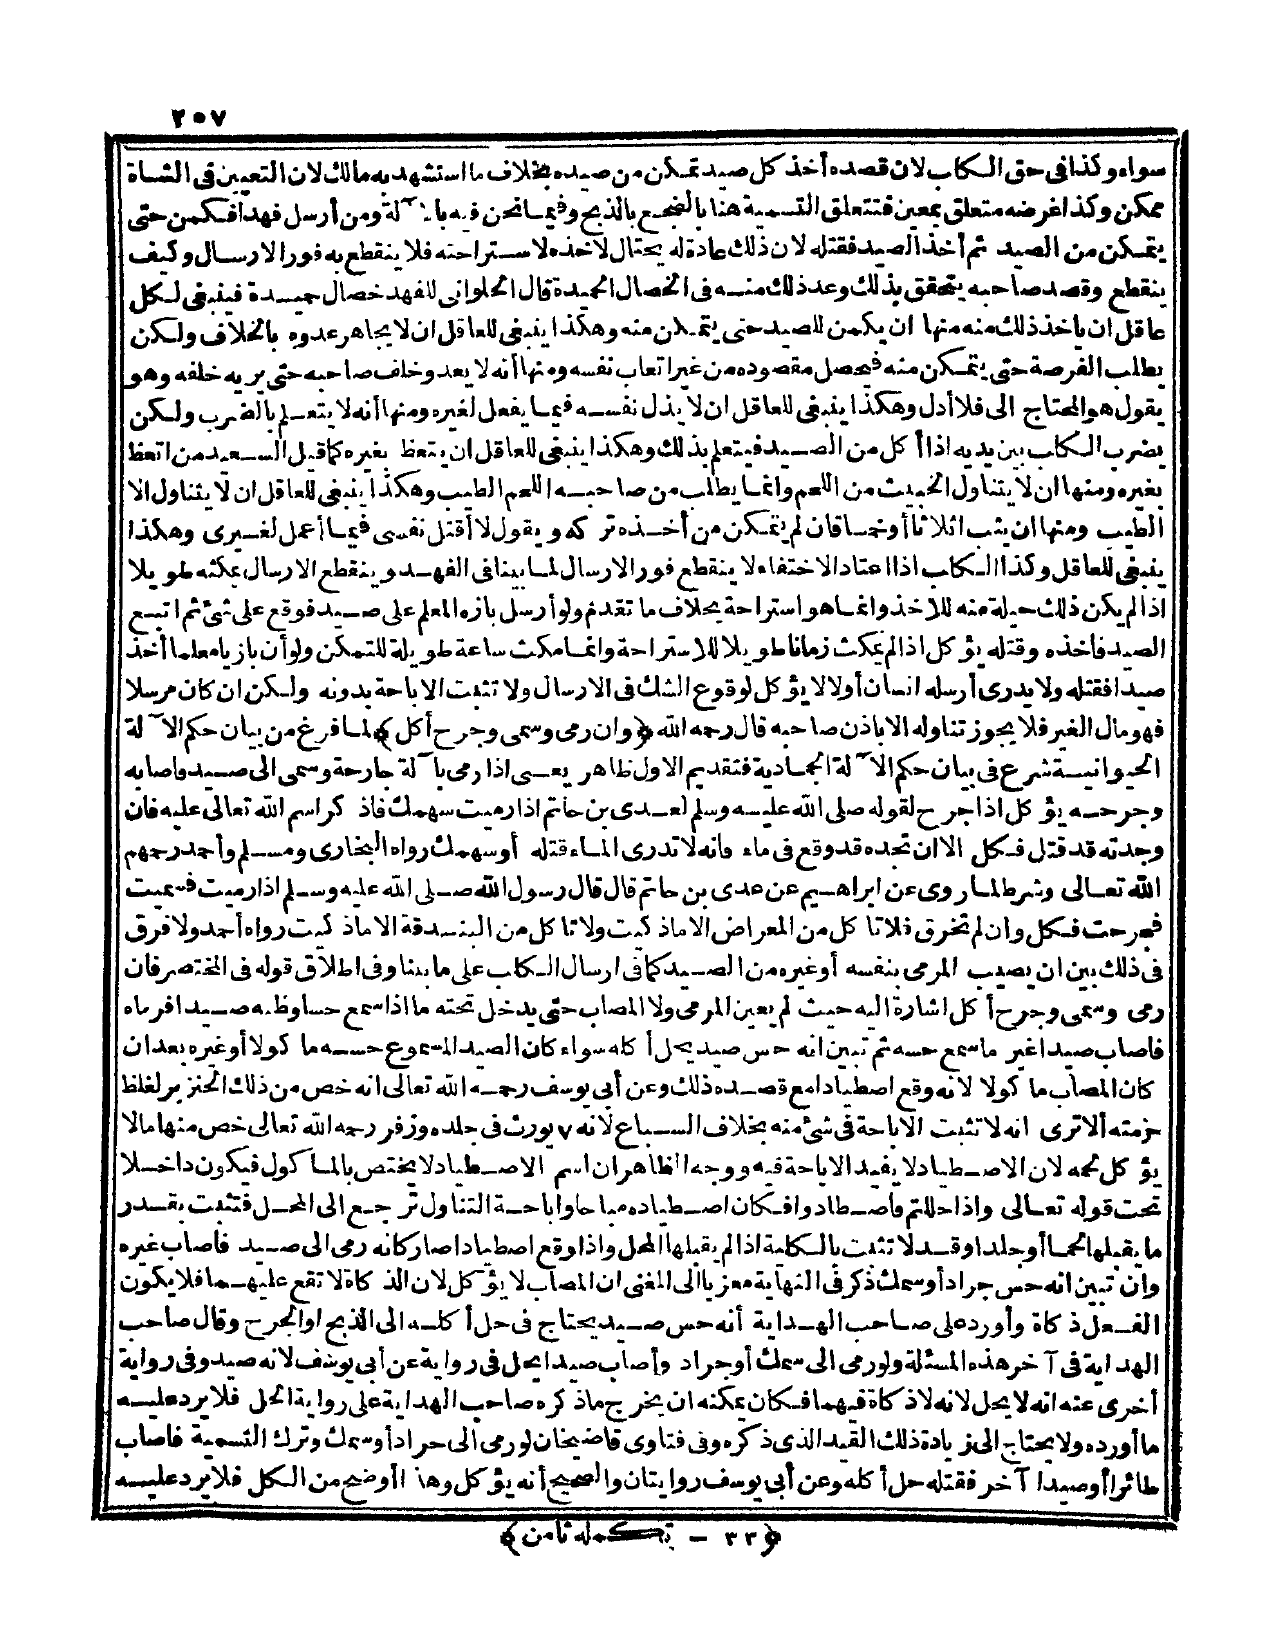 ٢٥٧
سواء وكذا فى حق الكلب لان قصده أخذ كل صيد تمكن من صيده بخلاف ما استشهد به مالك لان التعيين فى الشاة
ممكن وكذا غرضه متعلق بمعين فتتعلق التسمية هنا بالضجع بالذبح وفيما نحن فيه بالآلة ومن أرسل فهدا فكمن حتى
يتمكن من الصيد ثم أخذ الصيد فقتله لان ذلك عادة له يحتال لاخذه لا ستراحته فلا ينقطع به فور الارسال وكيف
ينقطع وقصد صاحبه يتحقق بذلك وعد ذلك منه فى الخصال الحميدة قال الحلوانى للفهد خصال حميدة فينبغى لكل
عاقل ان ياخذ ذلك منه منها ان يكمن للصيد حتى يتمكن منه وهكذا ينبغى للعاقل ان لا يجاهر عدوه بالخلاف ولكن
يطلب الفرصة حتى يتمكن منه فيحصل مقصوده من غير اتعاب نفسه ومنها أنه لا يعدو خلف صاحبه حتى يربه خلفه وهو
يقول هو المحتاج الى فلا أذل وهكذا ينبغى للعاقل ان لا يذل نفسه فيما يفعل لغيره ومنها أنه لا يتعلم بالضرب ولكن
يضرب الكلب بين يديه اذا أكل من الصيد فيتعلم بذلك وهكذا ينبغى للعاقل ان يتعظ بغيره كما قيل السعيد من اتعظ
بغيره ومنها ان لا يتناول الخبيث من اللحم وانما يطلب من صاحبه اللحم الطيب وهكذا ينبغى للعاقل ان لا يتناول الا
الطيب ومنها ان يثب اثلاثا أو خمسا فان لم يتمكن من أخذه تركه ويقول لا أقتل نفسى فيما أعمل لغيرى وهكذا
ينبغى للعاقل وكذا الكلب اذا اعتاد الاختفاء لا ينقطع فور الارسال لما بينا فى الفهد وينقطع الارسال بمكثه طويلا
اذا لم يكن ذلك حيلة منه للاخذ وانما هو استراحة بخلاف ما تقدم ولو أرسل بازه المعلم على صيد فوقع على شئ ثم اتبع
الصيد فاخذه وقتله يؤكل اذا لم يمكث زمانا طويلا للاستراحة وانما مكث ساعة طويلة للتمكن ولو أن بازيا معلما أخذ
صيدا فقتله ولا يدرى أرسله انسان أولا لا يؤكل لوقوع الشك فى الارسال ولا تثبت الاباحة بدونه ولكن ان كان مرسلا
فهو مال الغير فلا يجوز تناوله الا باذن صاحبه قال رحمه الله ﴿وان رمى وسمى وجرح أكل﴾ لما فرغ من بيان حكم الآلة
الحيوانية شرع فى بيان حكم الآلة الجمادية فتقديم الاول ظاهر يعنى اذا رمى بآلة جارحة وسمى الى صيد فاصابه
وجرحه يؤكل اذا جرح لقوله صلى الله عليه وسلم لعدى بن حاتم اذا رميت سهمك فاذكر اسم الله تعالى عليه فان
وجدته قد قتل فكل الا ان تجده قد وقع فى ماء فانه لا تدرى الماء قتله أو سهمك رواه البخارى ومسلم وأحمد رحمهم
الله تعالى وشرط لما روى عن ابراهيم عن عدى بن حاتم قال قال رسول الله صلى الله عليه وسلم اذا رميت فسميت
فجرحت فكل وان لم تخرق فلا تاكل من المعراض الا ماذكيت ولا تاكل من البندقة الا ماذكيت رواه أحمد ولا فرق
فى ذلك بين ان يصيب المرمى بنفسه أو غيره من الصيد كما فى ارسال الكلب على ما بينا وفى اطلاق قوله فى المختصر فان
رمى وسمى وجرح أكل اشارة اليه حيث لم يعين المرمى ولا المصاب حتى يدخل تحته ما اذا سمع حسا وظنه صيدا فرماه
فاصاب صيدا غير ما سمع حسه ثم تبين انه حس صيد يحل أكله سواء كان الصيد المسموع حسه ماكولا أو غيره بعد ان
كان المصاب ماكولا لانه وقع اصطيادا مع قصده ذلك وعن أبى يوسف رحمه الله تعالى انه خص من ذلك الخنزير لغلظ
حرمته ألا ترى انه لا تثبت الاباحة فى شئ منه بخلاف السباع لانه ٧ يورث فى جلده وزفر رحمه الله تعالى خص منها مالا
يؤكل لحمه لان الاصطياد لا يفيد الاباحة فيه ووجه الظاهر ان اسم الاصطياد لا يختص بالماكول فيكون داخلا
تحت قوله تعالى واذا حللتم فاصطادوا فكان اصطياده مباحا واباحة التناول ترجع الى المحل فتثبت بقدر
ما يقبلها لحما أو جلدا وقد لا تثبت بالكلية اذا لم يقبلها المحل واذا وقع اصطيادا صار كانه رمى الى صيد فاصاب غيره
وان تبين انه حس جراد أو سمك ذكر فى النهاية معزيا الى المغنى ان المصاب لا يؤكل لان الذكاة لا تقع عليهما فلا يكون
الفعل ذكاة وأورد على صاحب الهداية أنه حس صيد يحتاج فى حل أكله الى الذبح أو الجرح وقال صاحب
الهداية فى آخر هذه المسئلة ولو رمى الى سمك أو جراد وأصاب صيدا يحل فى رواية عن أبى يوسف لانه صيد وفى رواية
أخرى عنه انه لا يحل لانه لاذكاة فيهما فكان يمكنه ان يخرج ماذكره صاحب الهداية على رواية الحل فلا يرد عليه
ما أورده ولا يحتاج الى زيادة ذلك القيد الذى ذكره وفى فتاوى قاضيخان لو رمى الى جراد أو سمك وترك التسمية فاصاب
طائرا أو صيدا آخر فقتله حل أكله وعن أبى يوسف روايتان والصحيح أنه يؤكل وهذا أوضح من الكل فلا يرد عليه
﴿٣٣ - تكمله ثامن﴾